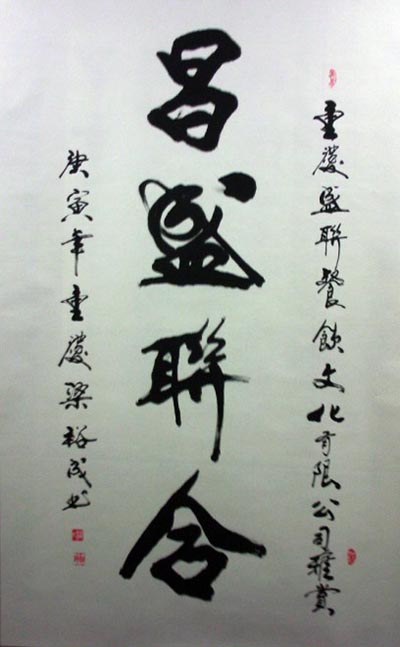 重慶盛聯餐飲文化有限公司雅賞
昌盛聯合
庚寅年重慶梁裕成書